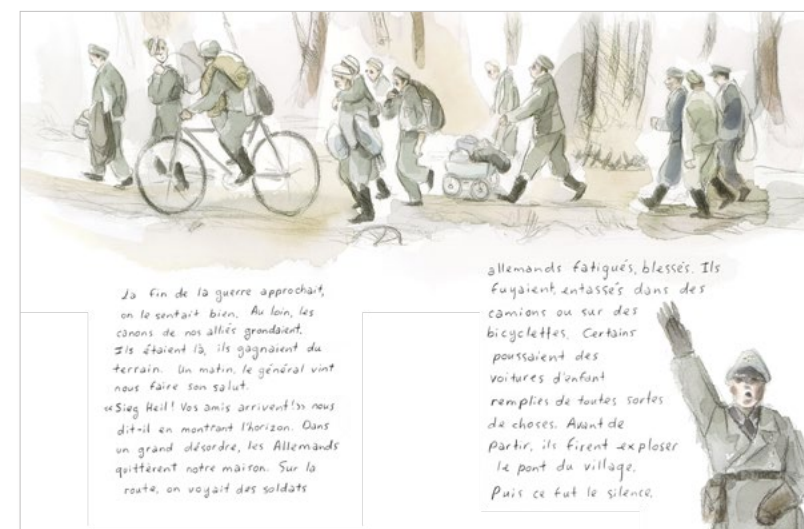 La fin de la guerre approchait,
on le sentait bien. Au loin, les
canons de nos alliés grondaient.
Ils étaient là, ils gagnaient du
terrain. Un matin, le général vint
nous faire son salut.
«Sieg Heil! Vos amis arrivent!» nous
dit-il en montrant l'horizon. Dans
un grand désordre, les Allemands
quittèrent notre maison. Sur la
route, on voyait des soldats
allemands fatigués, blessés. Ils
fuyaient, entassés dans des
camions ou sur des
bicyclettes. Certains
poussaient des
voitures d'enfant
remplies de toutes sortes
de choses. Avant de
partir, ils firent exploser
le pont du village.
Puis ce fut le silence.